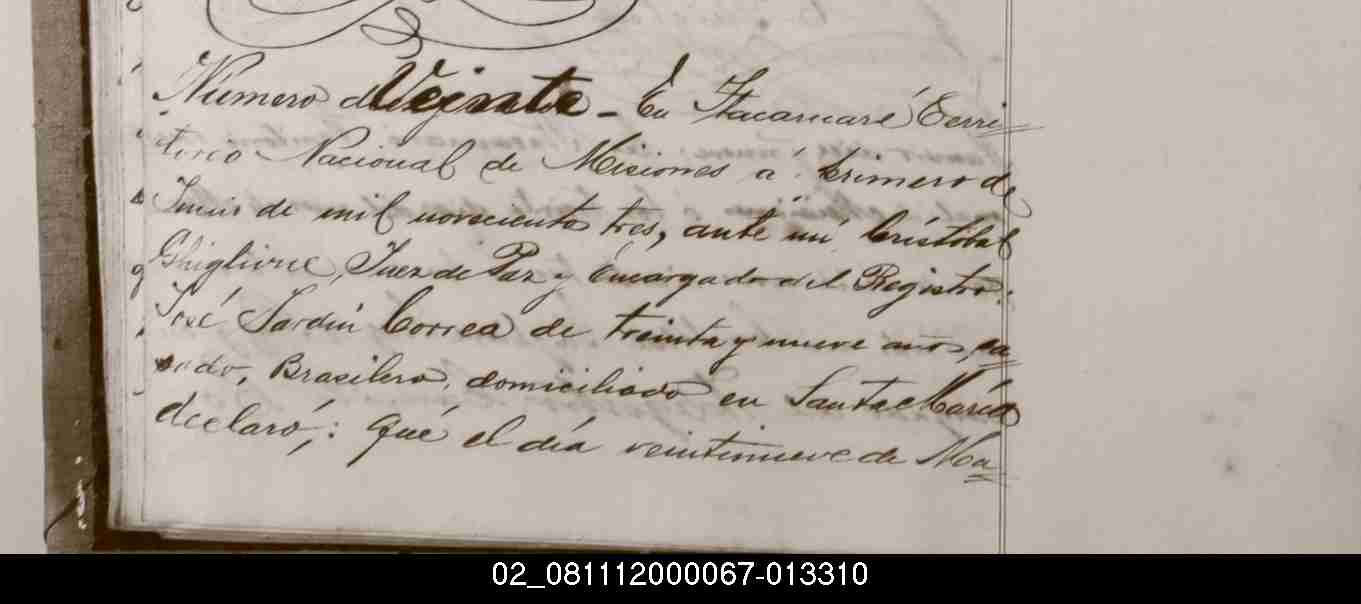 Número Veinte - En Itacaruaré Terri=
torio Nacional de Misiones á primero de
Junio de mil novecientos tres, ante mi Cristóbal
Ghiglione, Juez de Paz y Encargado del Registro:
José Jardin Correa de treinta y nueve años, ca=
sado, Brasilero, domiciliado en Santa María
declaró; : Qué el día veintinueve de Ma=
02_081112000067-013310